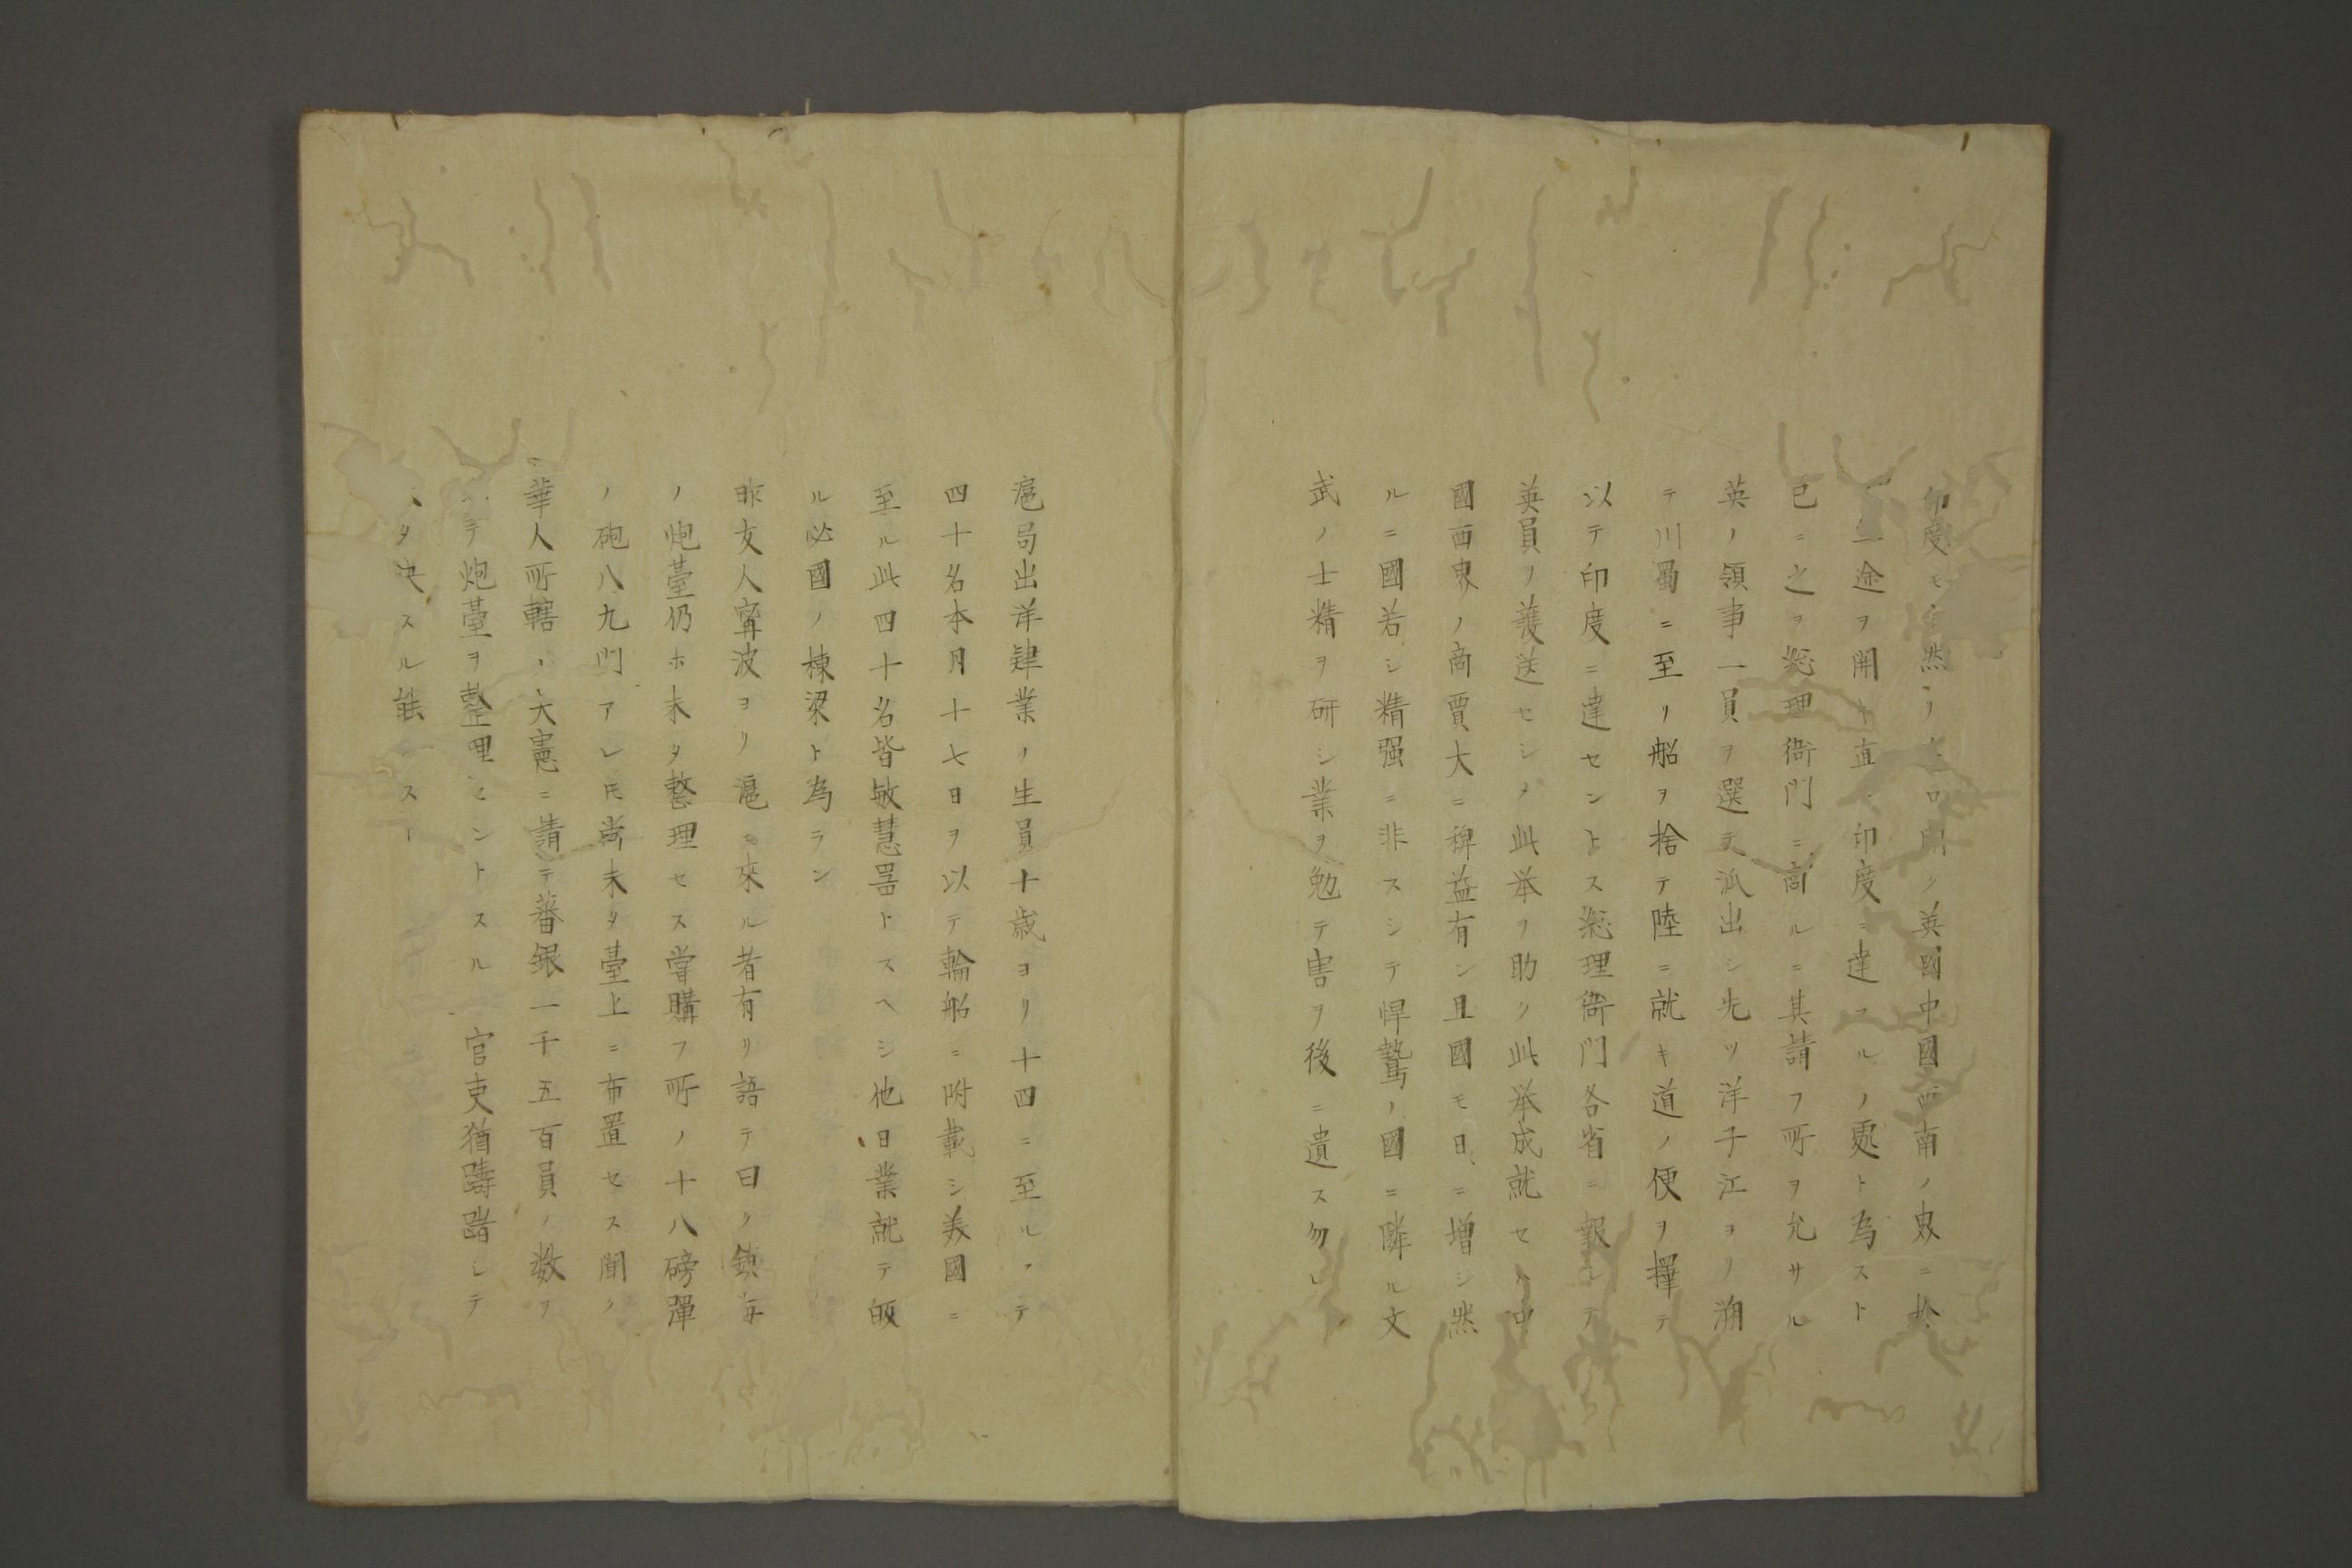 印度モ亦然リ 口開ク英國中國西南ノ奥ニ於
一途ヲ開キ直 印度ニ達スルノ處ト為スト
已ニ之ヲ総理衙門ニ商ルニ其請フ所ヲ允サル
英ノ領事一員ヲ選テ派出シ先ツ洋子江ヨリ溯
テ川蜀ニ至リ船ヲ捨テ陸ニ就キ道ノ便ヲ擇テ
以テ印度ニ達セントス総理衙門各省ニ報シテ
英員ヲ護送セシメ此挙ヲ助ク此挙成就セハ中
國西東ノ商賈大ニ稗益有ン且國モ日ニ増シ然
ルニ國若シ精强ニ非スシテ悍驁ノ國ニ隣ル文
武ノ士精ヲ研シ業ヲ勉テ害ヲ後ニ遺ス勿レ
滬局出洋肄業ノ生員十歳ヨリ十四ニ至ルヿテ
四十名本月十七日ヲ以テ輪船ニ附載シ美國ニ
至ル此四十名皆敏慧器トスヘシ他日業就テ皈
ル必國ノ棟梁ト為ラン
昨友人寗波ヨリ滬ニ來ル者有リ語テ曰ク鎮海
ノ炮臺仍ホ未タ整理セス嘗購フ所ノ十八磅彈
ノ砲八九門アレ𪜈尚未タ臺上ニ布置セス聞ク
華人所轄ノ大憲ニ請テ蕃銀一千五百員ノ数ヲ
テ炮臺ヲ整理セントスル 官吏猶躊躇シテ
タ决スル能ハス